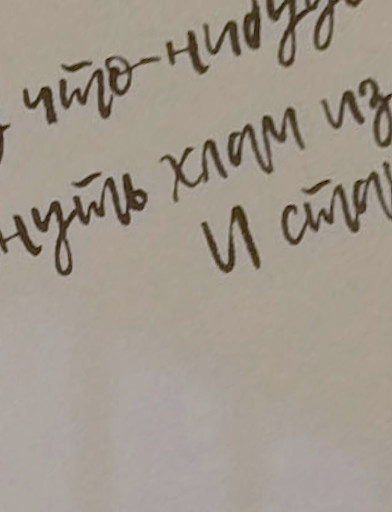 что-нибудь
нуть хлам из
И ста